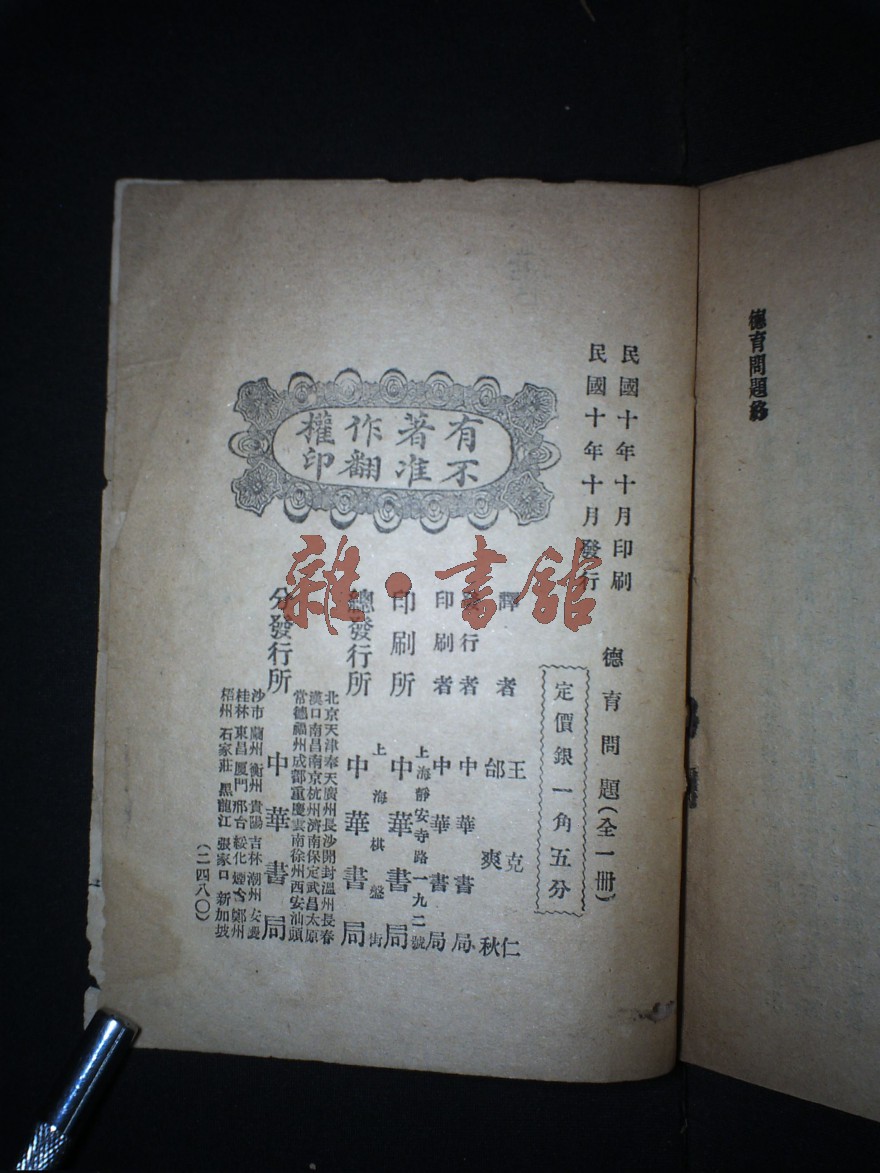 德育問題終
民國十年十月印刷
民國十年十月發行
德育問題(全一冊)
定價銀一角五分
譯者 王克仁
邰爽秋
發行者 中華書局
印刷者 中華書局
印刷所 上海靜安寺路一九二號
中華書局
總發行所 上海棋盤街
中華書局
分發行所 中華書局
北京天津奉天廣州長沙開封溫州長春
漢口南昌南京杭州濟南保定武昌太原
常德福州成都重慶雲南徐州西安汕頭
沙市 蘭州 衡州 貴陽 吉林 潮州 安慶
桂林 東昌 厦門 邢台 綏化 煙台 鄭州
梧州 石家莊 黑龍江 張家口 新加坡
(二四八〇)
有著作權
不准翻印
雜·書館